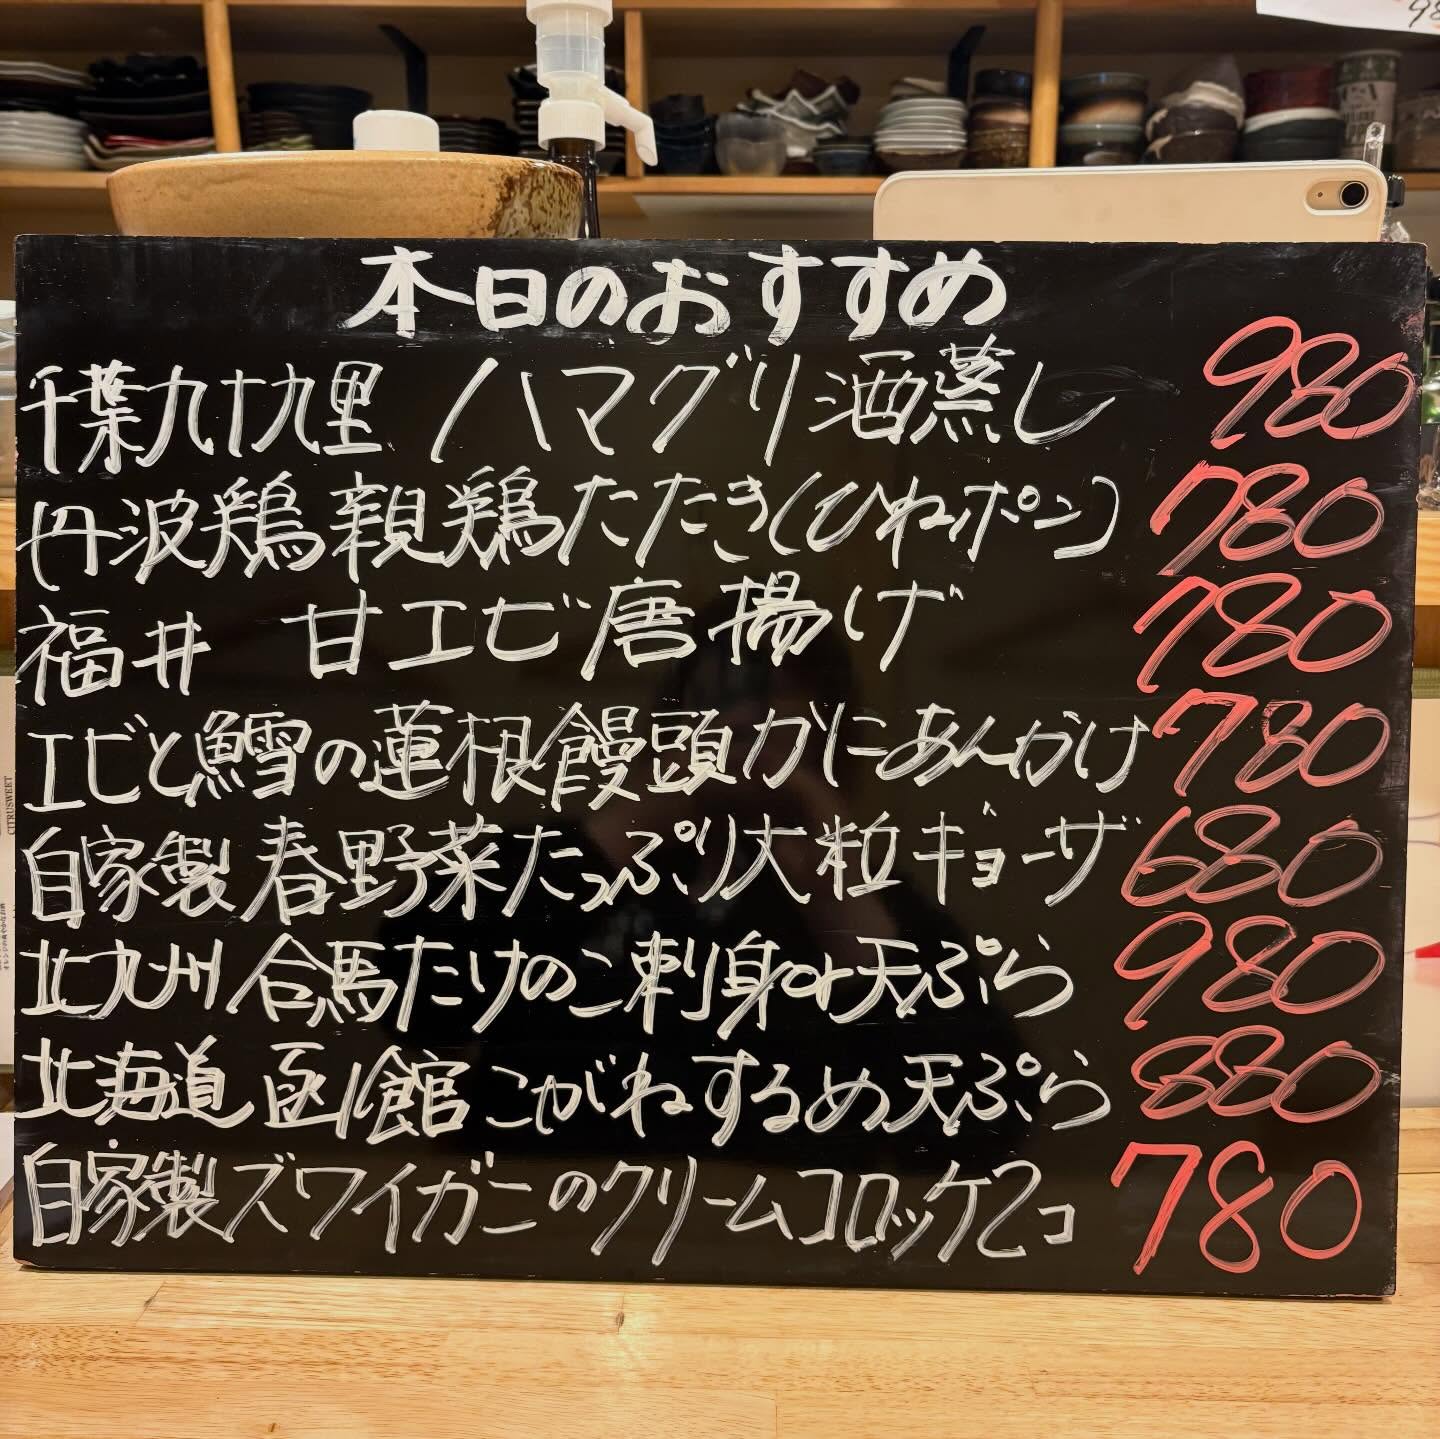 本日のおすすめ
千葉九十九里 ハマグリ酒蒸し 980
丹波鶏親鶏たたき(ひねポン) 780
福井 甘エビ唐揚げ 780
エビと鱈の蓮根饅頭かにあんかけ 780
自家製春野菜たっぷり大粒ギョーザ 680
北九州合馬たけのこ刺身or天ぷら 980
北海道函館こがねするめ天ぷら 880
自家製ズワイガニのクリームコロッケ2コ 780
CITRUSWEET